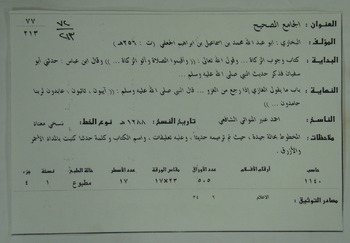 ٧٧
٢١٣
٧٢
٢١٣
العنوان : الجامع الصحيح
المؤلف : البخاري ، ابو عبد الله محمد بن اسماعيل بن ابراهيم الجعفي (ت ٢٥٦هـ)
البداية : كتاب وجوب الزكاة ... وقول الله تعالى : (( واقيموا الصلاة وآتو الزكاة ... )) وقال ابن عباس : حدثني أبو
سفيان فذكر حديث النبي صلى الله عليه وسلم ...
النهاية : باب ما يقول الغازي إذا رجع من الغزو ... قال النبي صلى الله عليه وسلم : (( آيبون ، تائبون ، عابدون لربنا
حامدون ... ))
الناسخ : احمد الشافعي تاريخ النسخ : ١٢٨٨هـ نوع الخط : نسخي معتاد
ملاحظات : المخطوط بحالة جيدة ، حيث تم ترميمه حديثاً ، وعليه تعليقات ، واسم الكتاب وكلمة حدثنا كتبت بالمداد الأحمر
والأزرق .
حاسب أرقام الأفلام عدد الأوراق مقاس الورقة عدد الأسطر حالة الطبع نسخة جزء
١١٤٠ ٥٠٥ ٢٣×١٧ ١٧ مطبوع ١ ٤
مصادر التوثيق : الاعلام ١ ٣٤